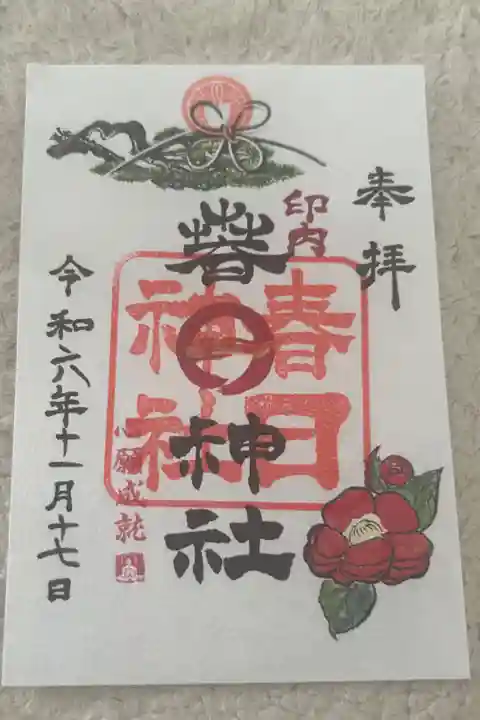 奉拝
印内
萅日神社
春日
神社
心願成就
令和六年十一月十七日